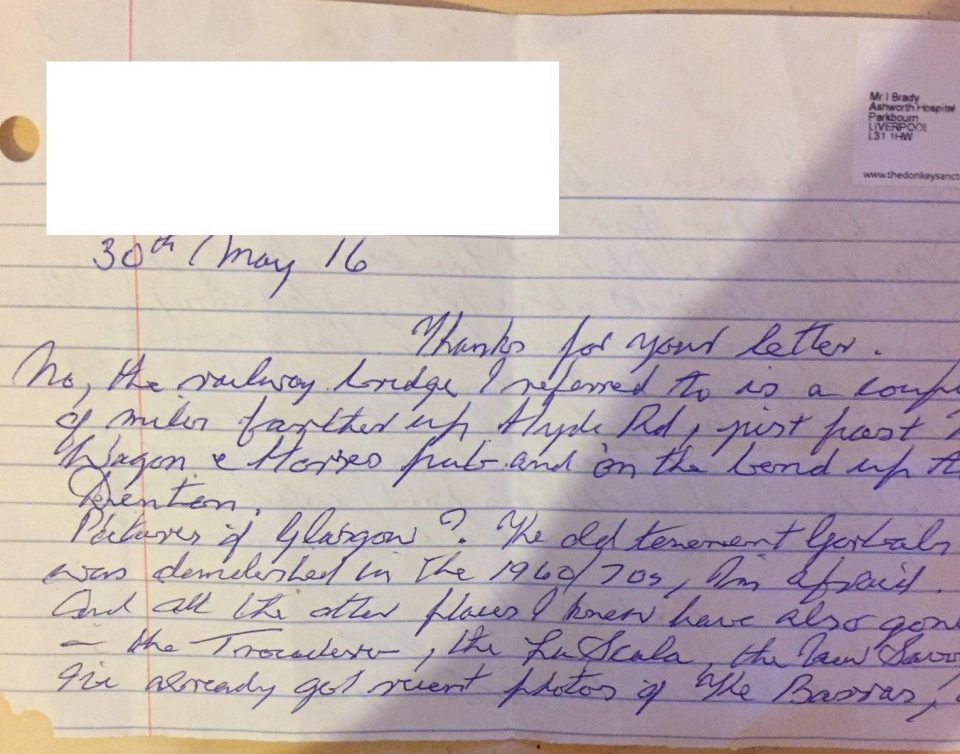 Mr I Brady
Ashworth Hospital
Parkbourn
LIVERPOOL
L31 1HW
www.thedonkeysanct
30th / May 16
Thanks for your letter.
No, the railway bridge I referred to is a coup
of miles farther up Hyde Rd, just past
Wagon & Horses pub and on the bend up
Denton.
Pictures of Glasgow? The old tenement Gorbals
was demolished in the 1960/70s, I'm afraid.
And all the other places I knew have also gone
– the Trocadero, the La Scala, the New Savo
I've already got recent photos of The Barras,